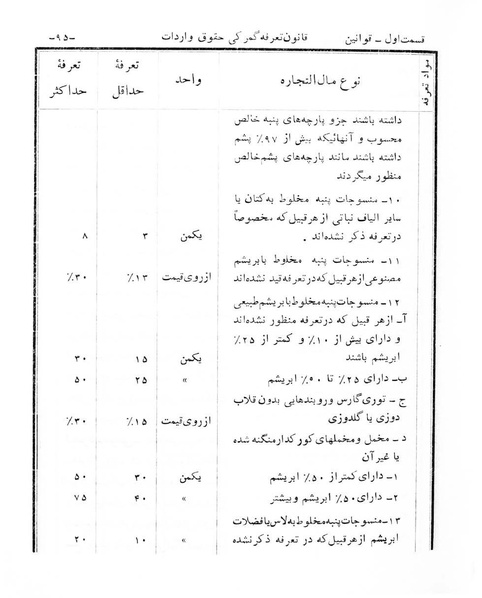 قسمت اول ـ قوانین قانون تعرفه گمرکی حقوق واردات ـ۹۵ـ
مواد تعرفه نوع مال‌التجاره واحد تعرفهٔ حداقل تعرفهٔ حداکثر
داشته باشند جزو پارچه‌های پنبه خالص
محسوب و آنهائیکه بیش از ۹۷٪ پشم
داشته باشند مانند پارچه‌های پشم خالص
منظور میگردند
۱۰ـ منسوجات پنبه مخلوط به کتان یا
سایر الیاف نباتی از هر قبیل که مخصوصاً
در تعرفه ذکر نشده‌اند . یکمن ۳ ۸
۱۱ـ منسوجات پنبه مخلوط با بریشم
مصنوعی از هر قبیل که در تعرفه قید نشده‌اند از روی قیمت ۱۳٪ ۳۰٪
۱۲ـ منسوجات پنبه مخلوط با بریشم طبیعی
آـ از هر قبیل که در تعرفه منظور نشده‌اند
و دارای بیش از ۱۰٪ و کمتر از ۲۵٪
ابریشم باشند یکمن ۱۵ ۳۰
ب‌ـ دارای ۲۵٪ تا ۵۰٪ ابریشم » ۲۵ ۵۰
ج ـ توری گارس و روبندهایی بدون قلاب
دوزی یا گلدوزی از روی قیمت ۱۵٪ ۳۰٪
د ـ مخمل و مخملهای کورکدار منگنه شده
یا غیر آن
۱ـ دارای کمتر از ۵۰٪ ابریشم یکمن ۳۰ ۵۰
۲ـ دارای ۵۰٪ ابریشم و بیشتر » ۴۰ ۷۵
۱۳ـ منسوجات پنبه مخلوط به لاس یا فضلات
ابریشم از هر قبیل که در تعرفه ذکر نشده » ۱۰ ۲۰